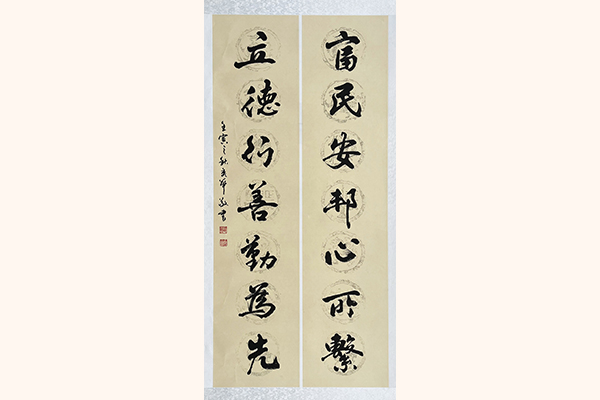 富民安邦心所繫
立德行善勤為先
壬寅之秋
敬書